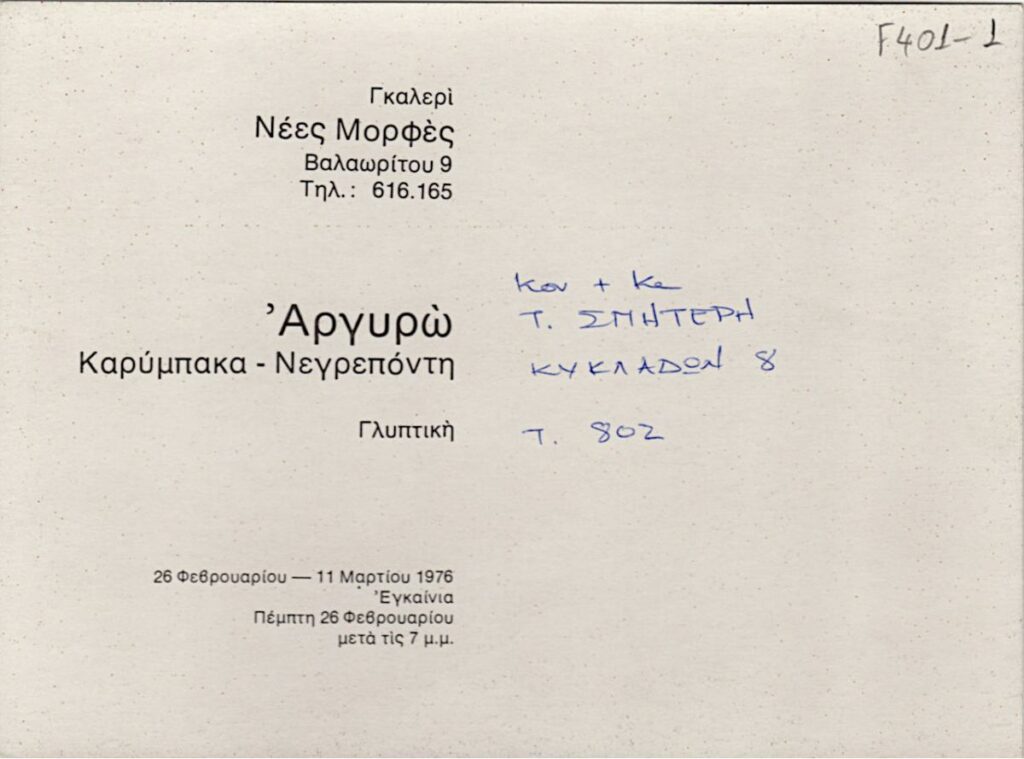 F401-1
Γκαλερὶ
Νέες Μορφὲς
Βαλαωρίτου 9
Τηλ.: 616.165
Ἀργυρὼ
Καρύμπακα - Νεγρεπόντη
Γλυπτικὴ
26 Φεβρουαρίου — 11 Μαρτίου 1976
Ἐγκαίνια
Πέμπτη 26 Φεβρουαρίου
μετὰ τὶς 7 μ.μ.
Κον + Κα
Τ. ΣΠΗΤΕΡΗ
ΚΥΚΛΑΔΩΝ 8
Τ. 802